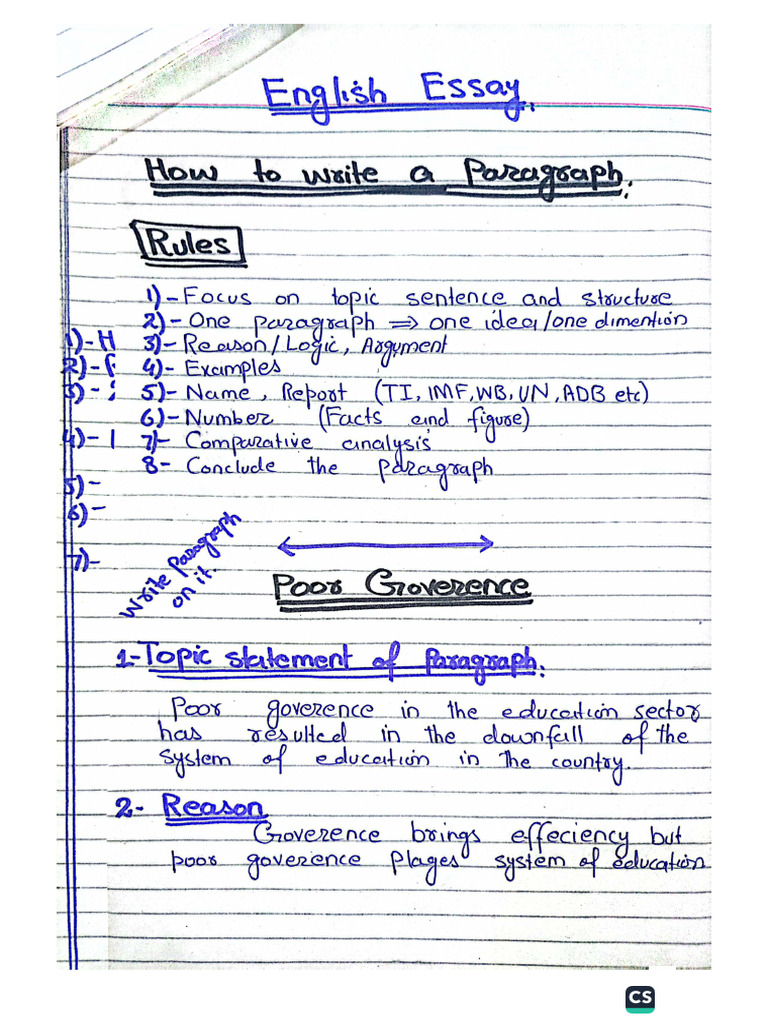 English Essay.
How to write a Paragraph:
Rules
1)- Focus on topic sentence and structure
2)- One paragraph ⇒ one idea/one dimention
3)- Reason/Logic, Argument
4)- Examples
5)- Name, Report (TI, IMF, WB, UN, ADB etc)
6)- Number (Facts and figure)
7)- Comparative analysis
8- Conclude the paragraph
1)- H
2)-
3)-
4)-
5)-
6)-
7)-
Write Paragraph
on it.
Poor Goverence
1- Topic statement of Paragraph.
Poor goverence in the education sector
has resulted in the downfall of the
system of education in the country.
2- Reason
Goverence brings effeciency but
poor goverence plages system of education
CS